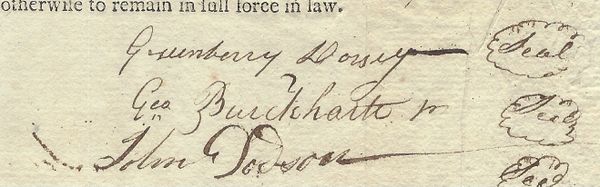 otherwise to remain in full force in law.
Greenberry Dorsey Seal
Geo Burckhartt Jr Seal
John Dodson Seal